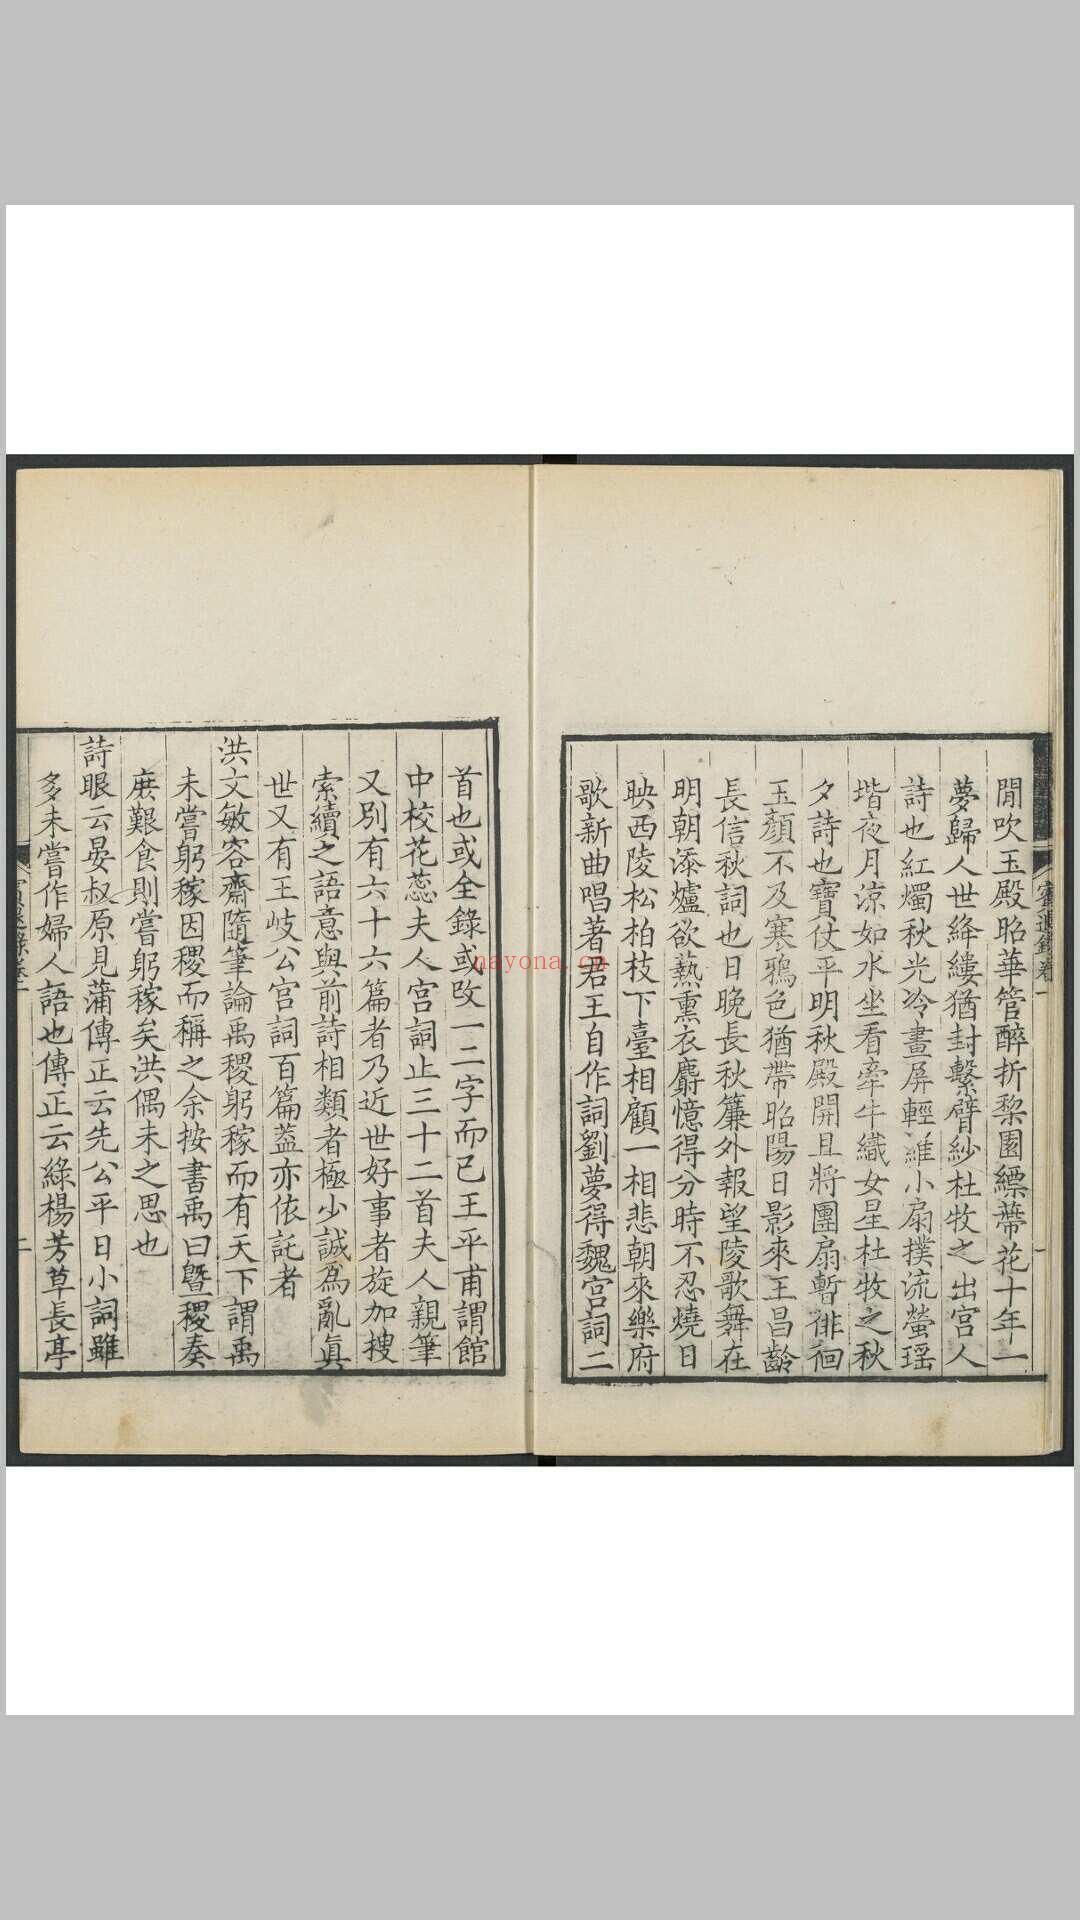 閒吹玉殿昭華管醉折梨園縹蔕花十年一
夢歸人世絳縷猶封繫臂紗杜牧之出宮人
詩也紅燭秋光冷畫屏輕羅小扇撲流螢瑶
堦夜月涼如水坐看牽牛織女星杜牧之秋
夕詩也寶仗平明秋殿開且將團扇暫徘徊
玉顏不及寒鴉色猶帶昭陽日影來王昌齡
長信秋詞也日晚長秋簾外報望陵歌舞在
明朝添爐欲爇熏衣麝憶得分時不忍燒日
映西陵松柏枝下臺相顧一相悲朝來樂府
歌新曲唱著君王自作詞劉夢得魏宮詞二
賓退錄卷一
首也或全錄或改一二字而已王平甫謂館
中校花蕊夫人宮詞止三十二首夫人親筆
又別有六十六篇者乃近世好事者旋加搜
索續之語意與前詩相類者極少誠為亂真
世又有王岐公宮詞百篇蓋亦依託者
洪文敏容齋隨筆論禹稷躬稼而有天下謂禹
未嘗躬稼因稷而稱之余按書禹曰暨稷奏
庶艱食則嘗躬稼矣洪偶未之思也
詩眼云晏叔原見蒲傳正云先公平日小詞雖
多未嘗作婦人語也傳正云綠楊芳草長亭
二
nayona.cn